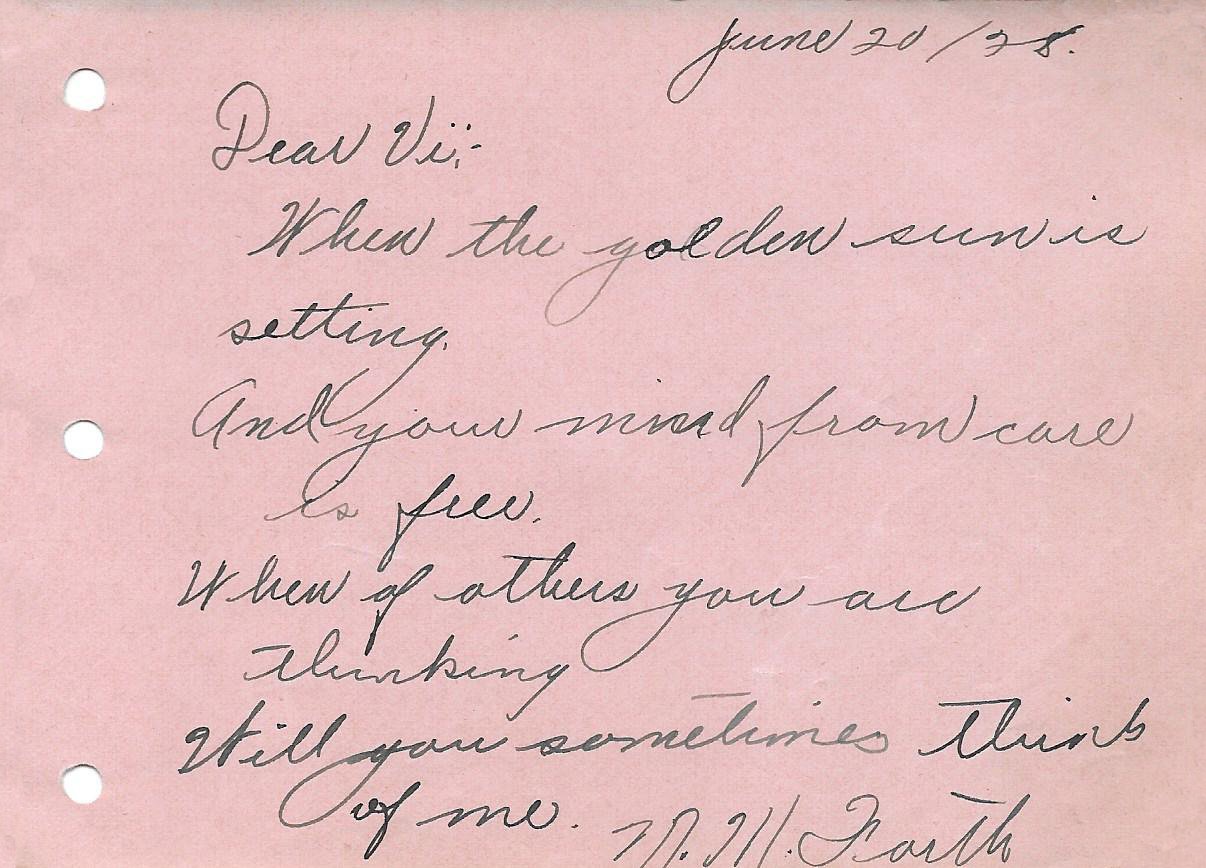 June 20/28.
Dear Vi;-
When the golden sun is
setting.
And your mind from care
is free.
When of others you are
thinking
Will you sometimes think
of me.
M. Forth